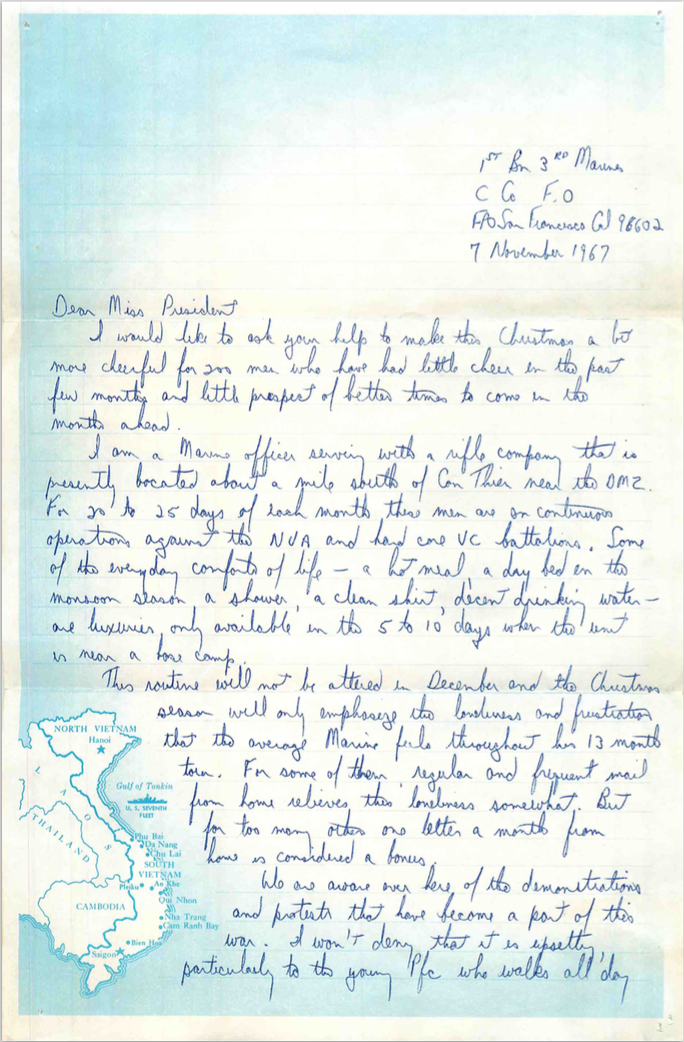 1ST Bn 3RD Marines
C Co F.O
FPO San Francisco Cal 96602
7 November 1967
Dear Miss President
I would like to ask your help to make this Christmas a bit
more cheerful for 200 men who have had little cheer in the past
few months and little prospect of better times to come in the
months ahead.
I am a Marine officer serving with a rifle company that is
presently located about a mile south of Con Thien near the DMZ.
For 20 to 25 days of each month these men are on continuous
operations against the NVA and hard core VC battalions. Some
of the everyday comforts of life – a hot meal, a dry bed in the
monsoon season a shower, a clean shirt, decent drinking water –
are luxuries only available in the 5 to 10 days when the unit
is near a base camp.
This routine will not be altered in December and the Christmas
season will only emphasize the loneliness and frustration
that the average Marine feels throughout his 13 month
tour. For some of them, regular and frequent mail
from home relieves this loneliness somewhat. But
for too many others one letter a month from
home is considered a bonus.
We are aware over here of the demonstrations
and protests that have become a part of this
war. I won't deny that it is upsetting,
particularly to the young Pfc who walks all day
NORTH VIETNAM
Hanoi
LAOS
Gulf of Tonkin
U. S. SEVENTH
FLEET
THAILAND
Phu Bai
Da Nang
Chu Lai
SOUTH
VIETNAM
Pleiku
An Khe
Qui Nhon
CAMBODIA
Nha Trang
Cam Ranh Bay
Bien Hoa
Saigon